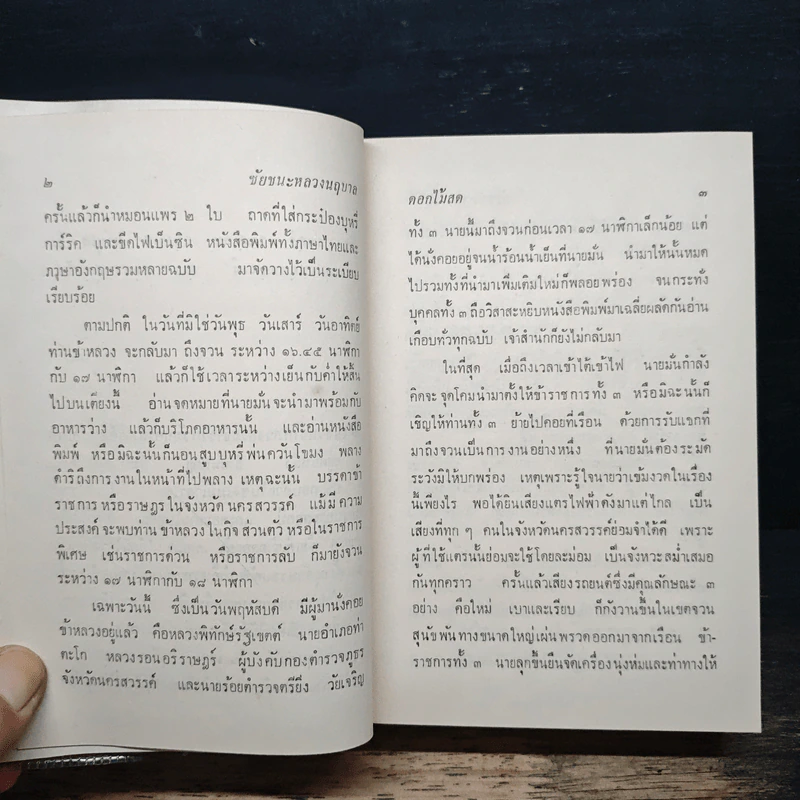 ๒ ชัยชนะหลวงนฤบาล
ครั้นแล้วก็นำหมอนแพร ๒ ใบ ถาดที่ใส่กระป๋องบุหรี่
การ์ริค และขีดไฟเบ็นซิน หนังสือพิมพ์ทั้งภาษาไทยและ
ภาษาอังกฤษรวมหลายฉบับ มาจัดวางไว้เป็นระเบียบ
เรียบร้อย
ตามปกติ ในวันที่มิใช่วันพุธ วันเสาร์ วันอาทิตย์
ท่านข้าหลวง จะกลับมา ถึงจวน ระหว่าง ๑๖.๔๕ นาฬิกา
กับ ๑๗ นาฬิกา แล้วก็ใช้เวลาระหว่างเย็นกับค่ำให้สิ้น
ไปบนเตียงนี้ อ่านจดหมายที่นายมั่นจะนำมาพร้อมกับ
อาหารว่าง แล้วก็บริโภคอาหารนั้น และอ่านหนังสือ
พิมพ์ หรือมิฉะนั้นก็นอนสูบบุหรี่พ่นควันโขมง พลาง
ดำริถึงการงานในหน้าที่ไปพลาง เหตุฉะนั้น บรรดาข้า
ราชการหรือราษฎรในจังหวัดนครสวรรค์ แม้มีความ
ประสงค์จะพบท่าน ข้าหลวงในกิจส่วนตัว หรือในราชการ
พิเศษ เช่นราชการด่วน หรือราชการลับ ก็มายังจวน
ระหว่าง ๑๗ นาฬิกากับ ๑๘ นาฬิกา
เฉพาะวันนี้ ซึ่งเป็นวันพฤหัสบดี มีผู้มานั่งคอย
ข้าหลวงอยู่แล้ว คือหลวงพิทักษ์รัฐเขตต์ นายอำเภอท่า
ตะโก หลวงรอนอริราษฎร์ ผู้บังคับกองตำรวจภูธร
จังหวัดนครสวรรค์ และนายร้อยตำรวจตรียิ่ง วัยเจริญ
ดอกไม้สด ๓
ทั้ง ๓ นายนี้มาถึงจวนก่อนเวลา ๑๗ นาฬิกาเล็กน้อย แต่
ได้นั่งคอยอยู่จนน้ำร้อนน้ำเย็นที่นายมั่น นำมาให้นั้นหมด
ไปรวมทั้งที่นำมาเพิ่มเติมใหม่ก็พลอยพร่อง จนกระทั่ง
บุคคลทั้ง ๓ ถือวิสาสะหยิบหนังสือพิมพ์มาเฉลี่ยผลัดกันอ่าน
เกือบทั่วทุกฉบับ เจ้าสำนักก็ยังไม่กลับมา
ในที่สุด เมื่อถึงเวลาเข้าไต้เข้าไฟ นายมั่นกำลัง
คิดจะจุดโคมนำมาตั้งให้ข้าราชการทั้ง ๓ หรือมิฉะนั้นก็
เชิญให้ท่านทั้ง ๓ ย้ายไปคอยที่เรือน ด้วยการรับแขกที่
มาถึงจวนเป็นการงานอย่างหนึ่ง ที่นายมั่นต้องระมัด
ระวังมิให้บกพร่อง เหตุเพราะรู้ใจนายว่าเข้มงวดในเรื่อง
นี้เพียงไร พอได้ยินเสียงแตรไฟฟ้าดังมาแต่ไกล เป็น
เสียงที่ทุก ๆ คนในจังหวัดนครสวรรค์ย่อมจำได้ดี เพราะ
ผู้ที่ใช้แตรนั้นย่อมจะใช้โดยละม่อม เป็นจังหวะสม่ำเสมอ
กันทุกคราว ครั้นแล้วเสียงรถยนต์ซึ่งมีคุณลักษณะ ๓
อย่าง คือใหม่ เบาและเรียบ ก็กังวานขึ้นในเขตจวน
สุนัขพันทางขนาดใหญ่เผ่นพรวดออกมาจากเรือน ข้า-
ราชการทั้ง ๓ นายลุกขึ้นยืนจัดเครื่องนุ่งห่มและท่าทางให้